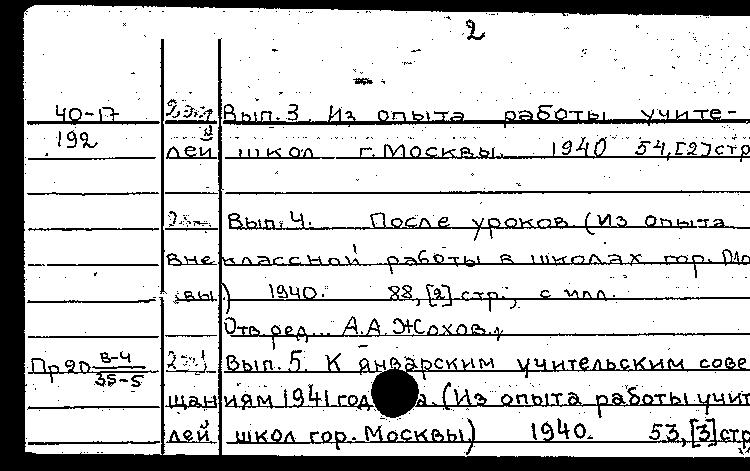 2
40-17 2 экз Вып. 3. Из опыта работы учите-
192 лей школ г. Москвы. 1940 54,[2] стр
Вып. 4. После уроков (Из опыта
внеклассной работы в школах гор. Мо
вы) 1940. 88,[2] стр., с илл.
Отв. ред... А.А. Жохов.
Пр 20 В-4/35-5 2 Вып. 5. К январским учительским сове
щаниям 1941 год а. (Из опыта работы учит
лей школ гор. Москвы) 1940. 53,[3] стр